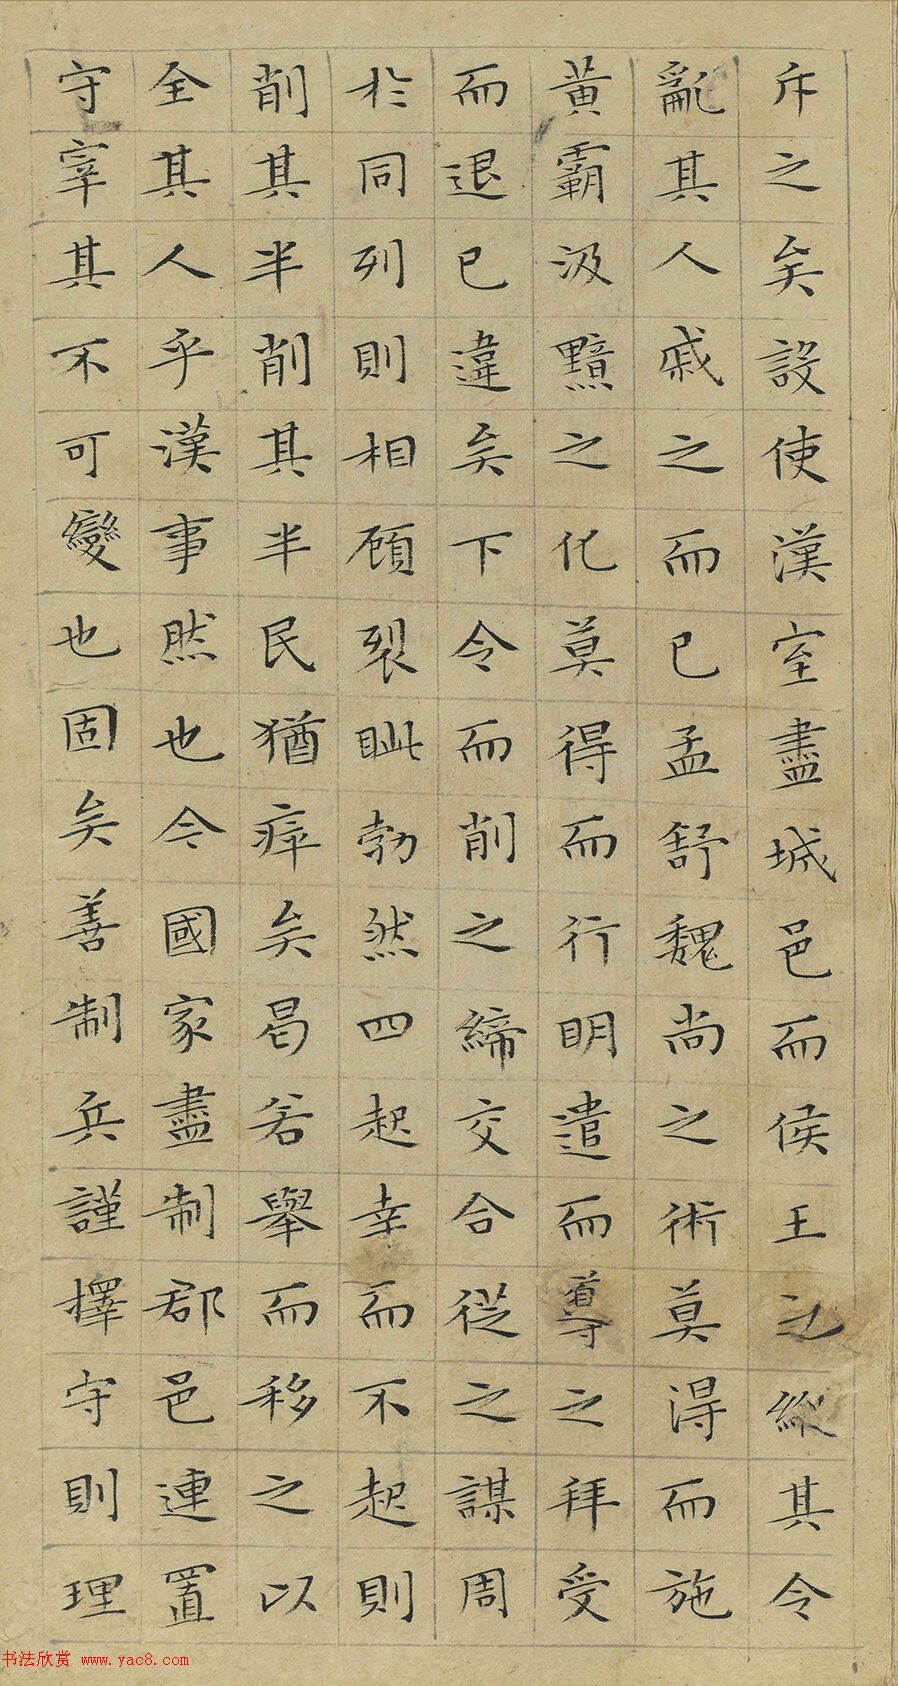 斥之矣設使漢室盡城邑而侯王之縱其令
亂其人戚之而已孟舒魏尚之術莫得而施
黃霸汲黯之化莫得而行明遣而導之拜受
而退已違矣下令而削之締交合從之謀周
於同列則相顧裂眦勃然四起幸而不起則
削其半削其半民猶瘁矣曷若舉而移之以
全其人乎漢事然也今國家盡制郡邑連置
守宰其不可變也固矣善制兵謹擇守則理
书法欣赏 www.yac8.com